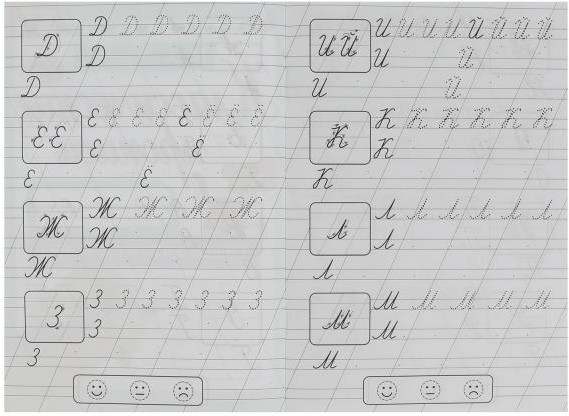 Д Д Д Д Д Д Д
Д
Д
Е Ё Е Е Е Е Ё Ё Ё Ё
Е Ё
Е Ё
Ж Ж Ж Ж Ж
Ж
Ж
З З З З З З З З
З
З
И Й И И И И Й Й Й Й
И Й
И Й
К К К К К К К
К
К
Л Л Л Л Л Л Л
Л
Л
М М М М М М
М
М